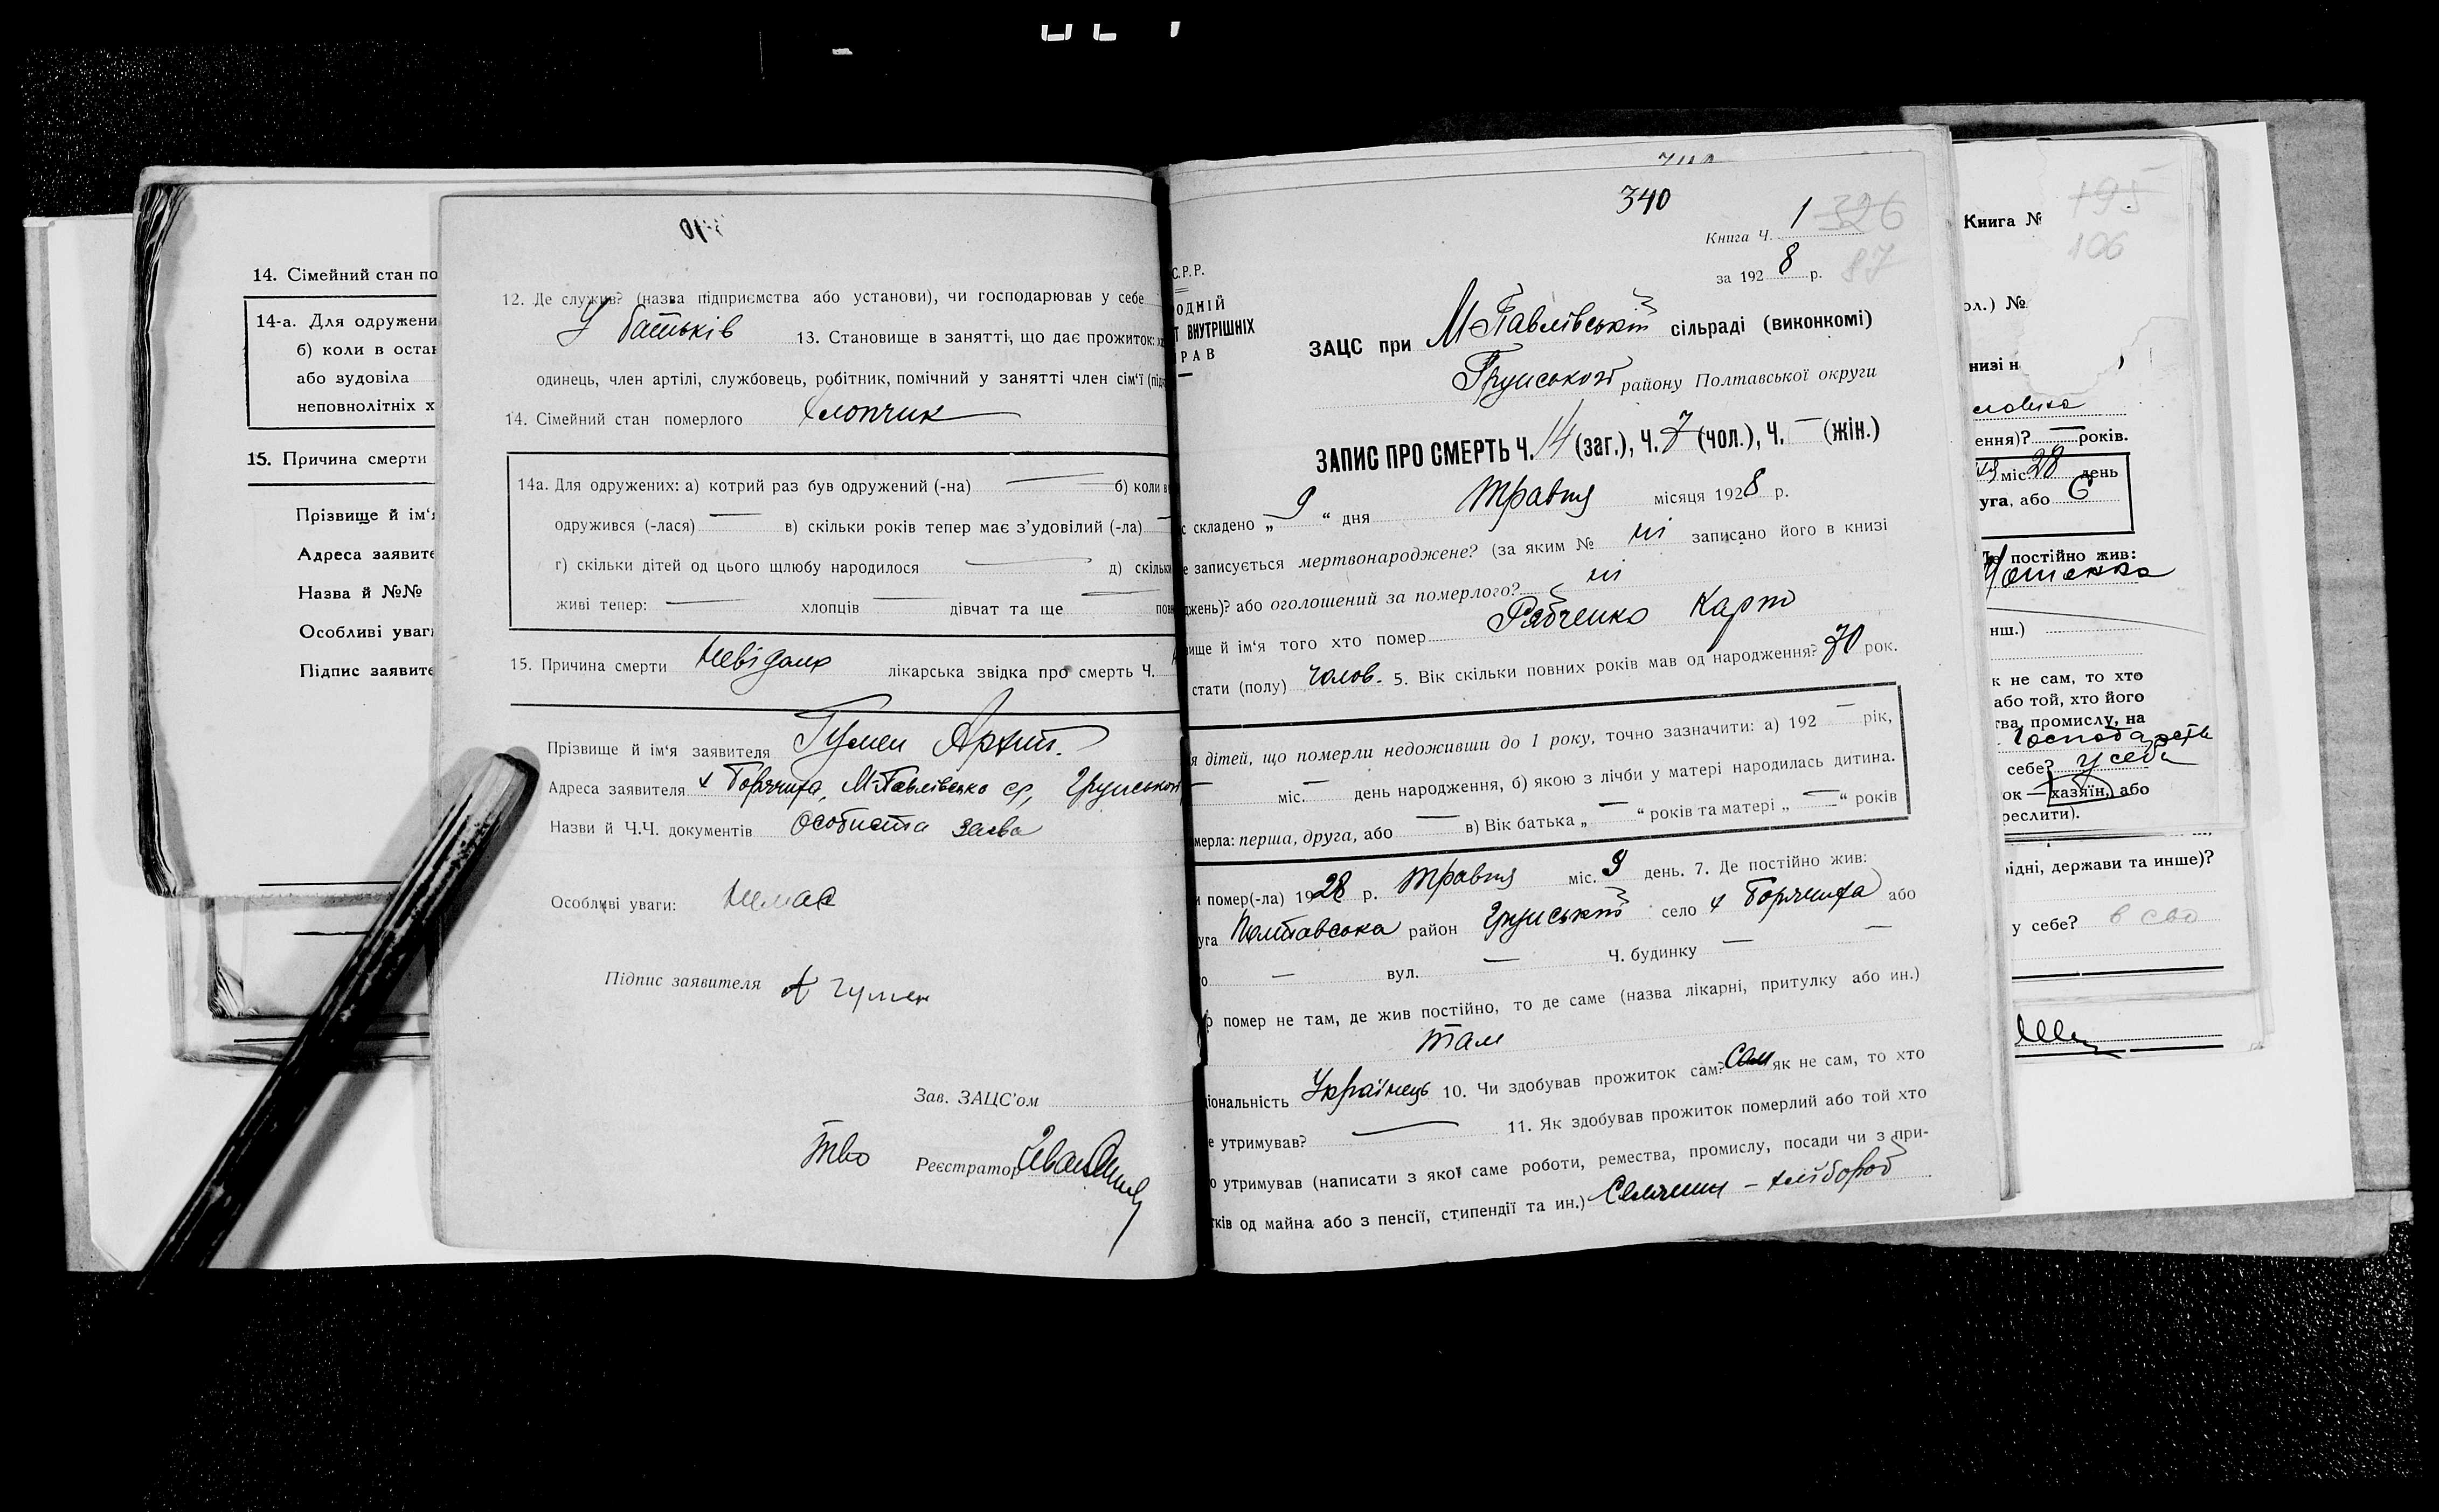 14. Сімейний стан по
14-а. Для одружени
б) коли в остан
або зудовіла
неповнолітніх х
15. Причина смерти
Прізвище й ім'я
Адреса заявите
Назва й №№
Особливі уваги
Підпис заявите
12. Де служив? (назва підприємства або установи), чи господарював у себе
У батьків 13. Становище в занятті, що дає прожиток:
одинець, член артілі, службовець, робітник, помічний у занятті член сім'ї (під
14. Сімейний стан померлого Хлопчик
14а. Для одружених: а) котрий раз був одружений (-на) — б) коли в
одружився (-лася) — в) скільки років тепер має з'удовілий (-ла) —
г) скільки дітей од цього щлюбу народилося — д) скільки
живі тепер: — хлопців — дівчат та ще —
15. Причина смерти Невідома лікарська звідка про смерть Ч.
Прізвище й ім'я заявителя Гумен
Адреса заявителя х М-Павлівсько
Назви й Ч.Ч. документів Особиста заява
Особливі уваги: Немає
Підпис заявителя А Гумен
Зав. ЗАЦС'ом
тво Реєстратор
340
Книга Ч. 1 326
за 1928 р. 87
С.Р.Р.
ОДНІЙ
Т ВНУТРІШНІХ
РАВ
ЗАЦС при М-Павлівській сільраді (виконкомі)
Грунського району Полтавської округи
ЗАПИС ПРО СМЕРТЬ Ч. 14 (заг.), Ч. 7 (чол.), Ч. — (жін.)
с складено „9“ дня Травня місяця 1928 р.
е записується мертвонароджене? (за яким № ні записано його в книзі
джень)? або оголошений за померлого? ні
вище й ім'я того хто помер Рябченко Карпо
стати (полу) чолов. 5. Вік скільки повних років мав од народження? 70 рок.
я дітей, що померли недоживши до 1 року, точно зазначити: а) 192 — рік,
— міс. — день народження, б) якою з лічби у матері народилась дитина.
мерла: перша, друга, або — в) Вік батька „—“ років та матері „—“ років
и помер(-ла) 1928 р. Травня міс. 9 день. 7. Де постійно жив:
уга Полтавська район Грунський село х або
о — вул. — Ч. будинку —
р помер не там, де жив постійно, то де саме (назва лікарні, притулку або ин.)
там
ціональність Українець 10. Чи здобував прожиток сам? Сам як не сам, то хто
е утримував? — 11. Як здобував прожиток померлий або той хто
о утримував (написати з якої саме роботи, ремества, промислу, посади чи з при-
тків од майна або з пенсії, стипендії та ин.) - хлібороб
Книга № 195
106
ол.) №
низі н
ення)? — років.
міс. 28 день
уга, або 6
Де постійно жив:
нш.)
к не сам, то хто
або той, хто його
тва, промислу, на
себе? у себе
ок — хазяїн, або
реслити).
ідні, держави та инше)?
у себе?